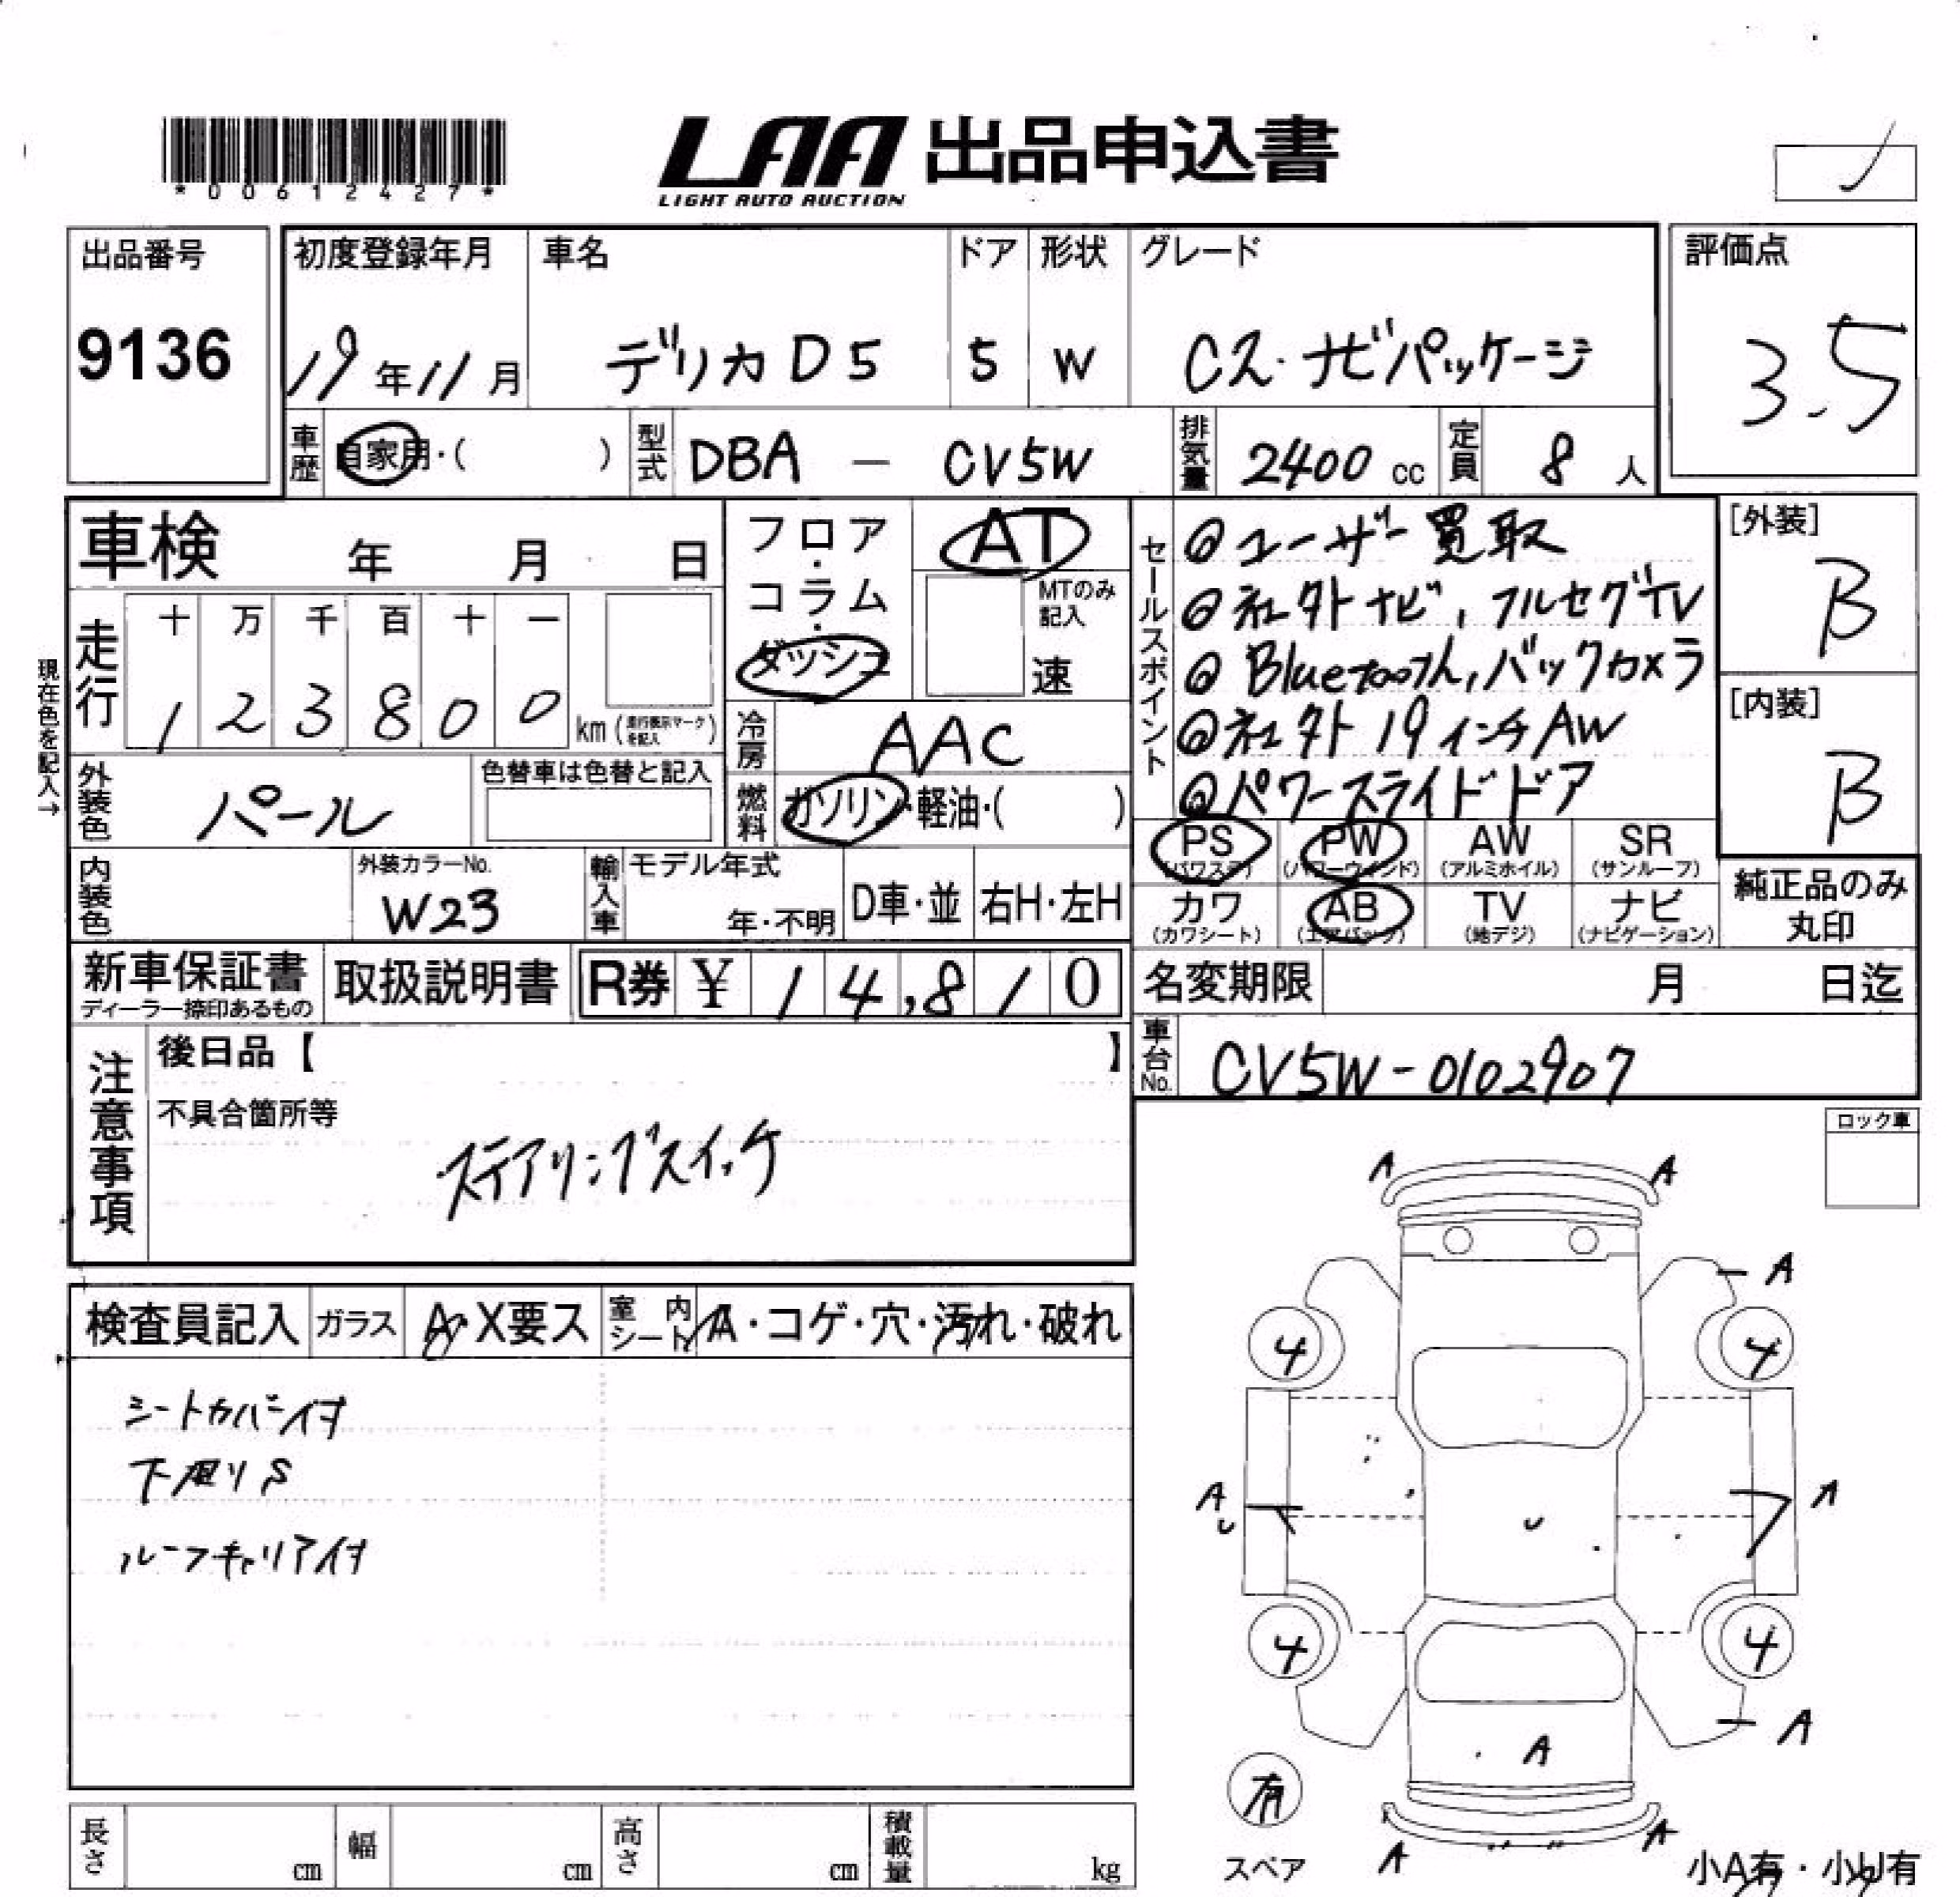 *00612427*
LAA 出品申込書
LIGHT AUTO AUCTION
出品番号
9136
初度登録年月
19年11月
車名
デリカD5
ドア
5
形状
W
グレード
C2・ナビパッケージ
評価点
3.5
車歴
自家用・( )
型式
DBA - CV5W
排気量
2400 cc
定員
8 人
車検 年 月 日
フロア・コラム・ダッシュ
AT
MTのみ記入
速
走行
十 万 千 百 十 一
1 2 3 8 0 0
km(走行表示マークを記入)
現在色を記入→
冷房
AAC
外装色
パール
色替車は色替と記入
燃料
ガソリン・軽油・( )
内装色
外装カラーNo.
W23
輸入車
モデル年式
年・不明
D車・並
右H・左H
セールスポイント
@ユーザー買取
@社外ナビ,フルセグTV
@Bluetooth,バックカメラ
@社外19インチAW
@パワースライドドア
[外装]
B
[内装]
B
PS AW PW SR
(パワステ) (パワーウインド) (アルミホイル) (サンルーフ)
カワ AB TV ナビ
(カワシート) (エアバック) (地デジ) (ナビゲーション)
純正品のみ
丸印
新車保証書
ディーラー捺印あるもの
取扱説明書
R券 ¥ 14,810
名変期限 月 日迄
車台No.
CV5W-0102907
注意事項
後日品【 】
不具合箇所等
ステアリングスイッチ
ロック車
検査員記入
ガラス
A・X要ス
室内シート
A・コゲ・穴・汚れ・破れ
シートカバー付
下廻りS
ルーフキャリア付
A A
A
4 4
A
U
U
A
4 4
A
A
有
スペア
A A
小A有・小U有
長さ cm
幅 cm
高さ cm
積載量 kg